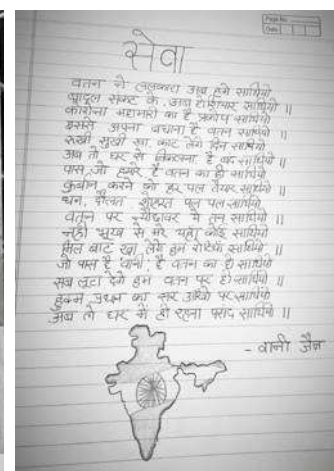 Page No.
Date
सेवा
वतन ने ललकारा अब हमे साथियो
बादल संकट के, आज साथियो ॥
कोरोना महामारी का है प्रकोप साथियो
इससे अपना बचाना है वतन साथियो ॥
रूखी सुखी खा, काट लेंगे दिन साथियो
अब तो घर से निकलना है बंद साथियो ॥
पास जो हमारे है वतन का ही साथियो
कुर्बान करने को हर पल तैयार साथियो ॥
धन, दौलत शोहरत पल साथियो
वतन पर न्यौछावर ये तन साथियो ॥
नही भूख से मरे यहाँ कोई साथियो
मिल बाट खा लेंगे हम रोटियाँ साथियो ॥
जो पास है 'वानी', है वतन का ही साथियो
सब लूटा देंगे हम वतन पर ही साथियो ॥
हुक्म का सर आँखो पर साथियो
अब तो घर में ही रहना साथियो ॥
- वानी जैन